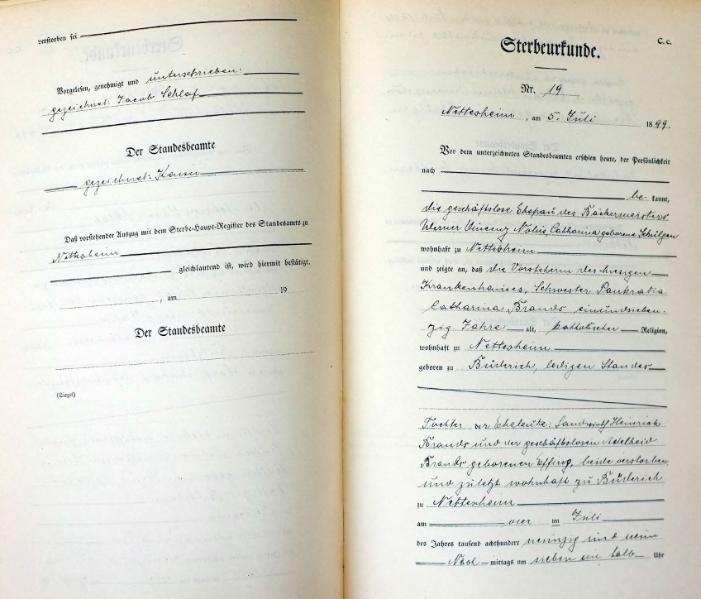 verstorben sei
Vorgelesen, genehmigt und unterschrieben:
gezeichnet: Jacob Schlaf
Der Standesbeamte
gezeichnet:
Daß vorstehender Auszug mit dem Sterbe-Haupt-Register des Standesamts zu
Nettesheim
gleichlautend ist, wird hiermit bestätigt.
, am 19
Der Standesbeamte
(Siegel)
C. c.
Sterbeurkunde.
Nr. 19
Nettesheim, am 5. Juli 1899.
Vor dem unterzeichneten Standesbeamten erschien heute, der Persönlichkeit
nach
be- kannt,
die geschäftslose Ehefrau des Bäckermeisters
Werner Vincenz Nolis, Catharina geborene Schülgen
wohnhaft zu Nettesheim
und zeigte an, daß die Vorsteherin des hiesigen
Krankenhauses, Schwester Pankratia
Catharina Brands einundsieben-
zig Jahre alt, katholischer Religion,
wohnhaft zu Nettesheim
geboren zu Büderich, ledigen Standes
Tochter der Eheleute: Landwirth Heinrich
Brands und der geschäftslosen Adelheid
Brands geborenen Effing, beide verstorben
und zuletzt wohnhaft zu Büderich
zu Nettesheim
am vier im Juli
des Jahres tausend achthundert neunzig und neun
Nach mittags um sieben ein halb Uhr